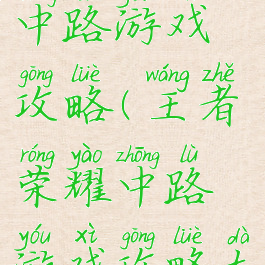 中路游戏
gōng lüè wáng zhě
攻略(王者
róng yào zhōng lù
荣耀中路
yóu xì gōng lüè dà
游戏攻略大